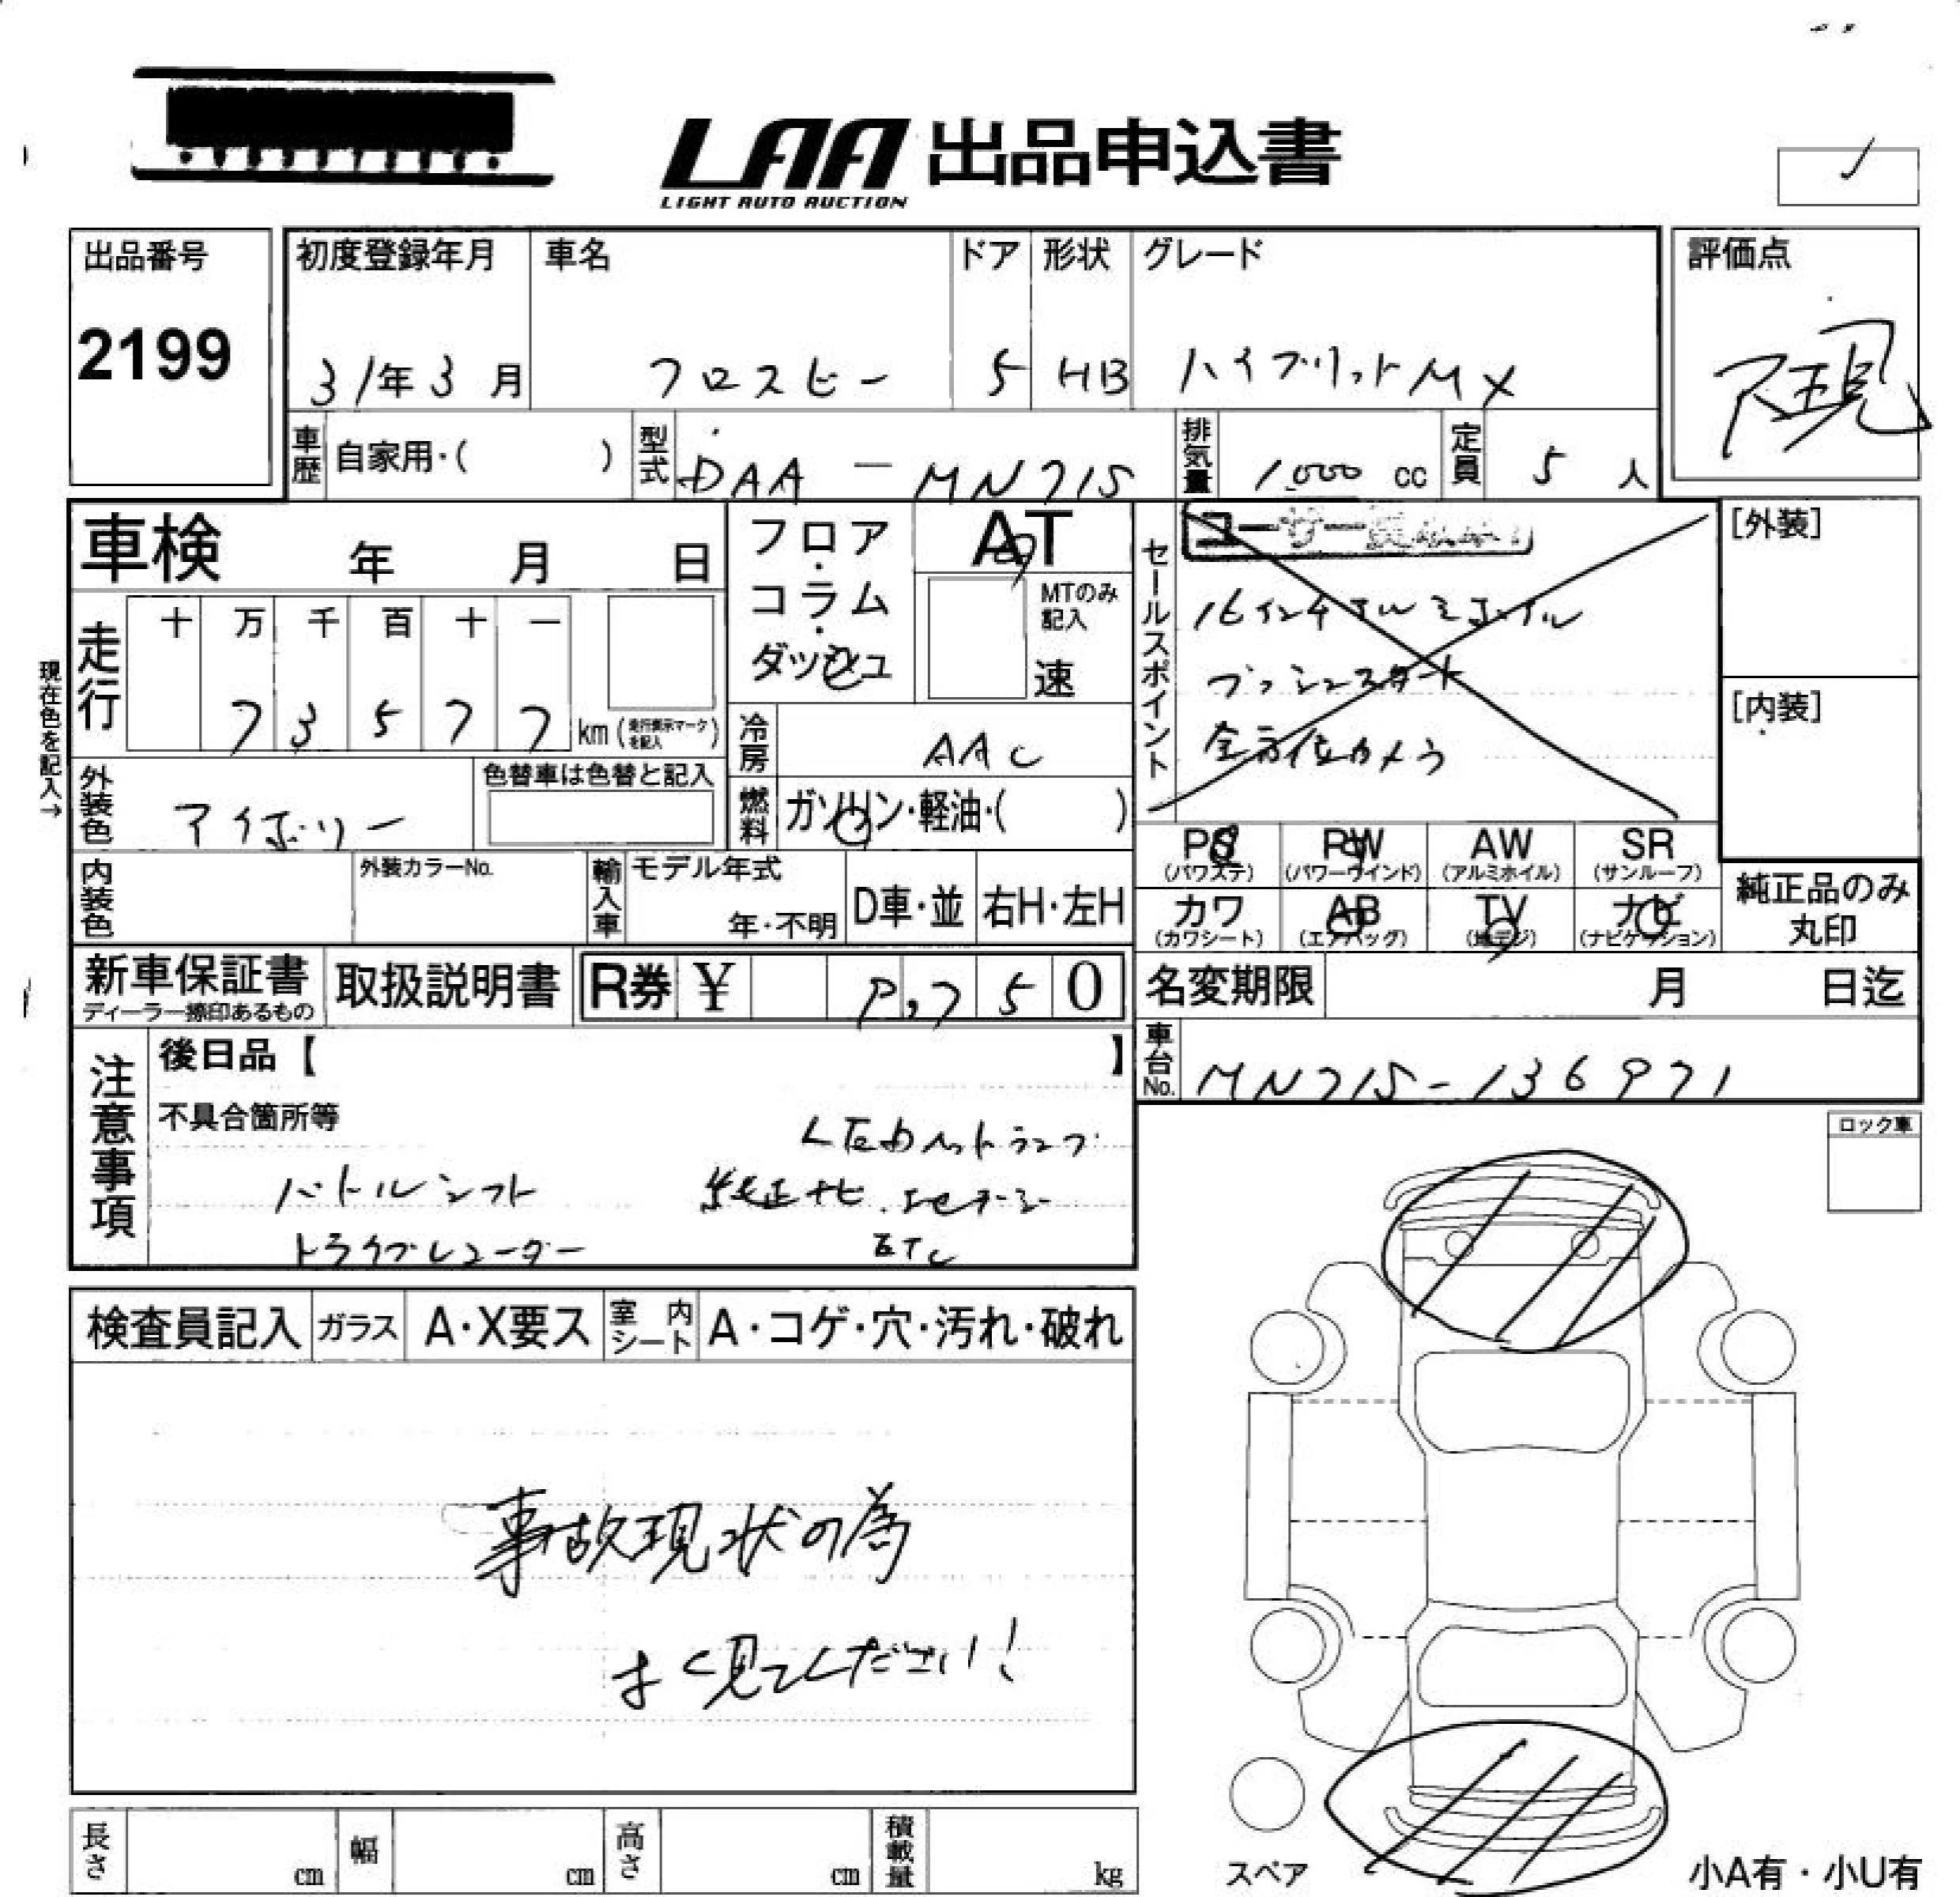 LAA 出品申込書
LIGHT AUTO AUCTION
出品番号
2199
初度登録年月
31年3月
車名
クロスビー
ドア
5
形状
HB
グレード
ハイブリットMX
評価点
現
車歴 自家用・( )
型式 DAA-MN71S
排気量 1,000 cc
定員 5 人
車検 年 月 日
フロア・コラム・ダッシュ
AT
MTのみ記入
速
セールスポイント
16インチアルミホイル
プッシュスタート
全方位カメラ
[外装]
[内装]
現在色を記入→
走行
十 万 千 百 十 一
7 3 5 7 7 km
(走行表示マークを記入)
冷房 AAC
外装色 アイボリー
色替車は色替と記入
燃料 ガソリン・軽油・( )
PS (パワステ)
PW (パワーウインド)
AW (アルミホイル)
SR (サンルーフ)
カワ (カワシート)
AB (エアバッグ)
TV (地デジ)
ナビ (ナビゲーション)
純正品のみ丸印
内装色
外装カラーNo.
輸入車
モデル年式
年・不明
D車・並
右H・左H
新車保証書
ディーラー捺印あるもの
取扱説明書
R券 ¥ 9,750
名変期限 月 日迄
車台No. MN71S-136971
注意事項
後日品【 】
不具合箇所等
LEDヘットランプ
パトルシフト 純正ナビ.
トライブレコーダー ETC
ロック車
検査員記入
ガラス
A・X要ス
室内シート
A・コゲ・穴・汚れ・破れ
事故現状の為
よく見てください!
長さ cm
幅 cm
高さ cm
積載量 kg
スペア
小A有・小U有